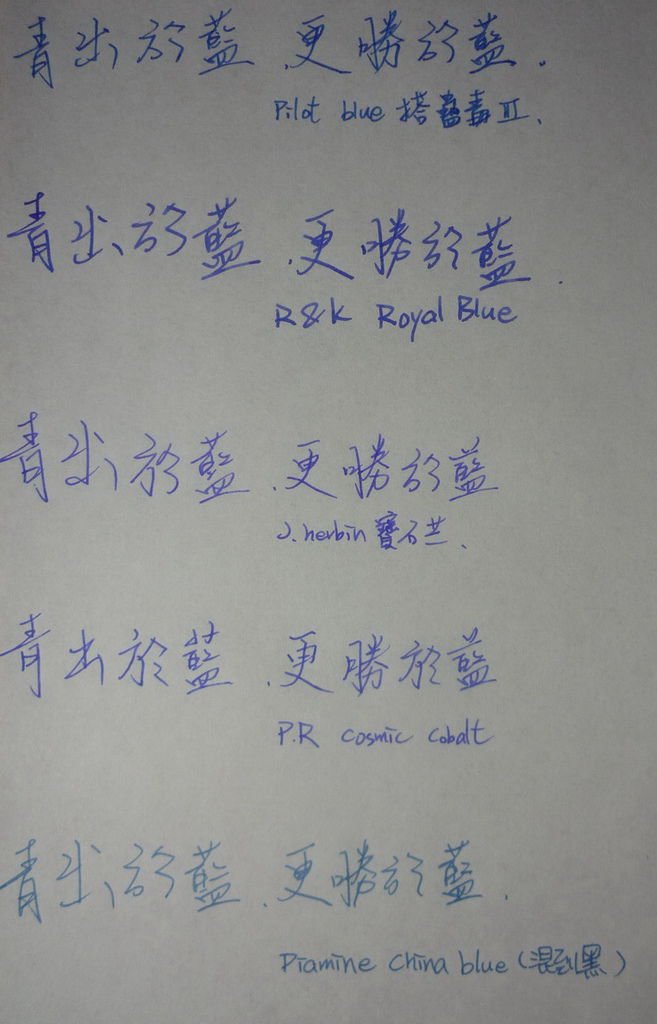 青出於藍.更勝於藍.
Pilot blue 搭蠱毒II.
青出於藍.更勝於藍.
R&K Royal Blue
青出於藍.更勝於藍
J.herbin 寶石芒.
青出於藍.更勝於藍
P.R cosmic cobalt
青出於藍.更勝於藍.
Diamine China blue (混到黑)